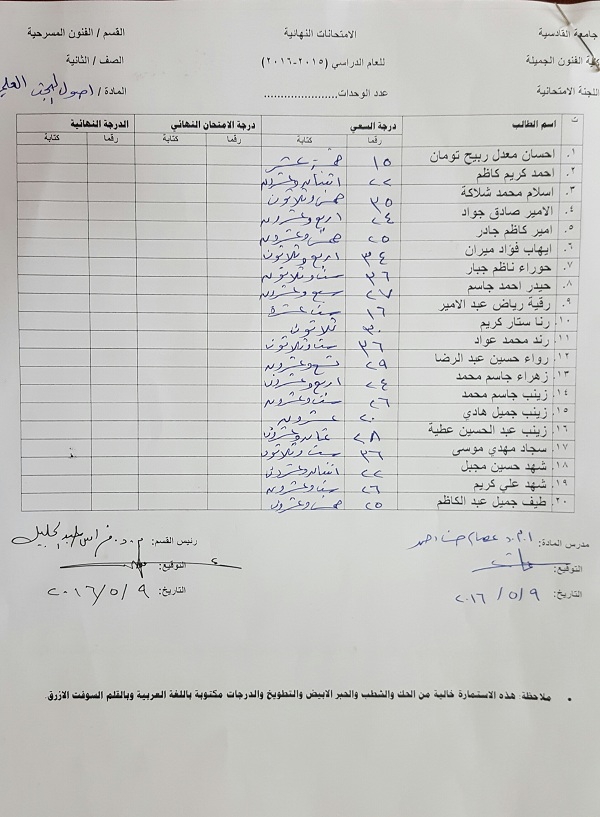 جامعة القادسية الامتحانات النهائية القسم / الفنون المسرحية
كلية الفنون الجميلة للعام الدراسي (٢٠١٥-٢٠١٦) الصف / الثانية
اللجنة الامتحانية عدد الوحدات..................... المادة / اصول البحث العلمي
ت اسم الطالب درجة السعي درجة الامتحان النهائي الدرجة النهائية
رقما كتابة رقما كتابة رقما كتابة
١. احسان معدل ربيح تومان ١٥ خمسة عشر
٢. احمد كريم كاظم ٢٢ اثنان وعشرون
٣. اسلام محمد شلاكة ٣٥ خمس وثلاثون
٤. الامير صادق جواد ٢٤ اربع وعشرون
٥. امير كاظم جادر ٢٥ خمس وعشرون
٦. ايهاب فؤاد ميران ٣٤ اربع وثلاثون
٧. حوراء ناظم جبار ٣٦ ست وثلاثون
٨. حيدر احمد جاسم ٢٧ سبع وعشرون
٩. رقية رياض عبد الامير ١٦ ست عشرة
١٠. رنا ستار كريم ٣٠ ثلاثون
١١. رند محمد عواد ٣٦ ست وثلاثون
١٢. رواء حسين عبد الرضا ٢٩ تسع وعشرون
١٣. زهراء جاسم محمد ٢٤ اربع وعشرون
١٤. زينب جاسم محمد ٢٦ ست وعشرون
١٥. زينب جميل هادي ٢٠ عشرون
١٦. زينب عبد الحسين عطية ٢٨ ثمان وعشرون
١٧. سجاد مهدي موسى ٣٦ ست وثلاثون
١٨. شهد حسين مجبل ٢٢ اثنان وعشرون
١٩. شهد علي كريم ٢٦ ست وعشرون
٢٠. طيف جميل عبد الكاظم ٢٥ خمس وعشرون
مدرس المادة: ا.م.د عصام احمد رئيس القسم: م.د. عبد الجليل
التوقيع: التوقيع:
التاريخ: ٢٠١٦/٥/٩ التاريخ: ٢٠١٦/٥/٩
• ملاحظة: هذه الاستمارة خالية من الحك والشطب والحبر الابيض والتطويخ والدرجات مكتوبة باللغة العربية وبالقلم السوفت الازرق.